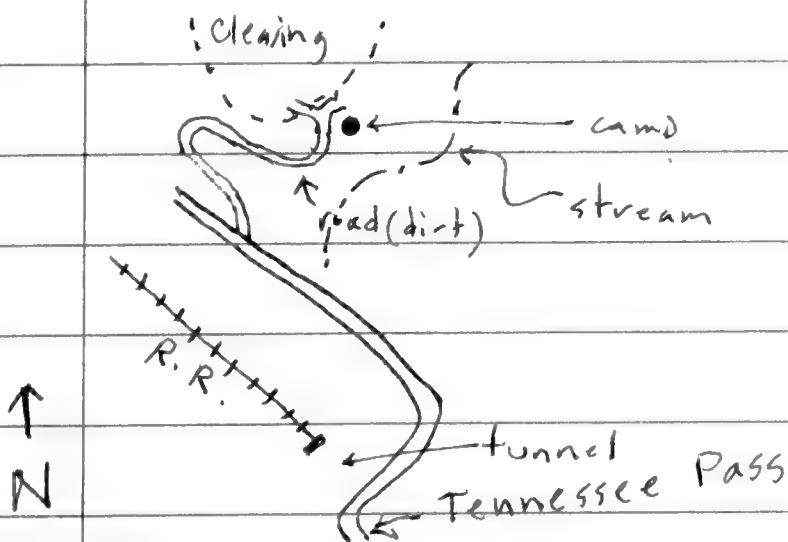 clearing
camp
stream
road (dirt)
R. R.
N
tunnel
Tennessee Pass